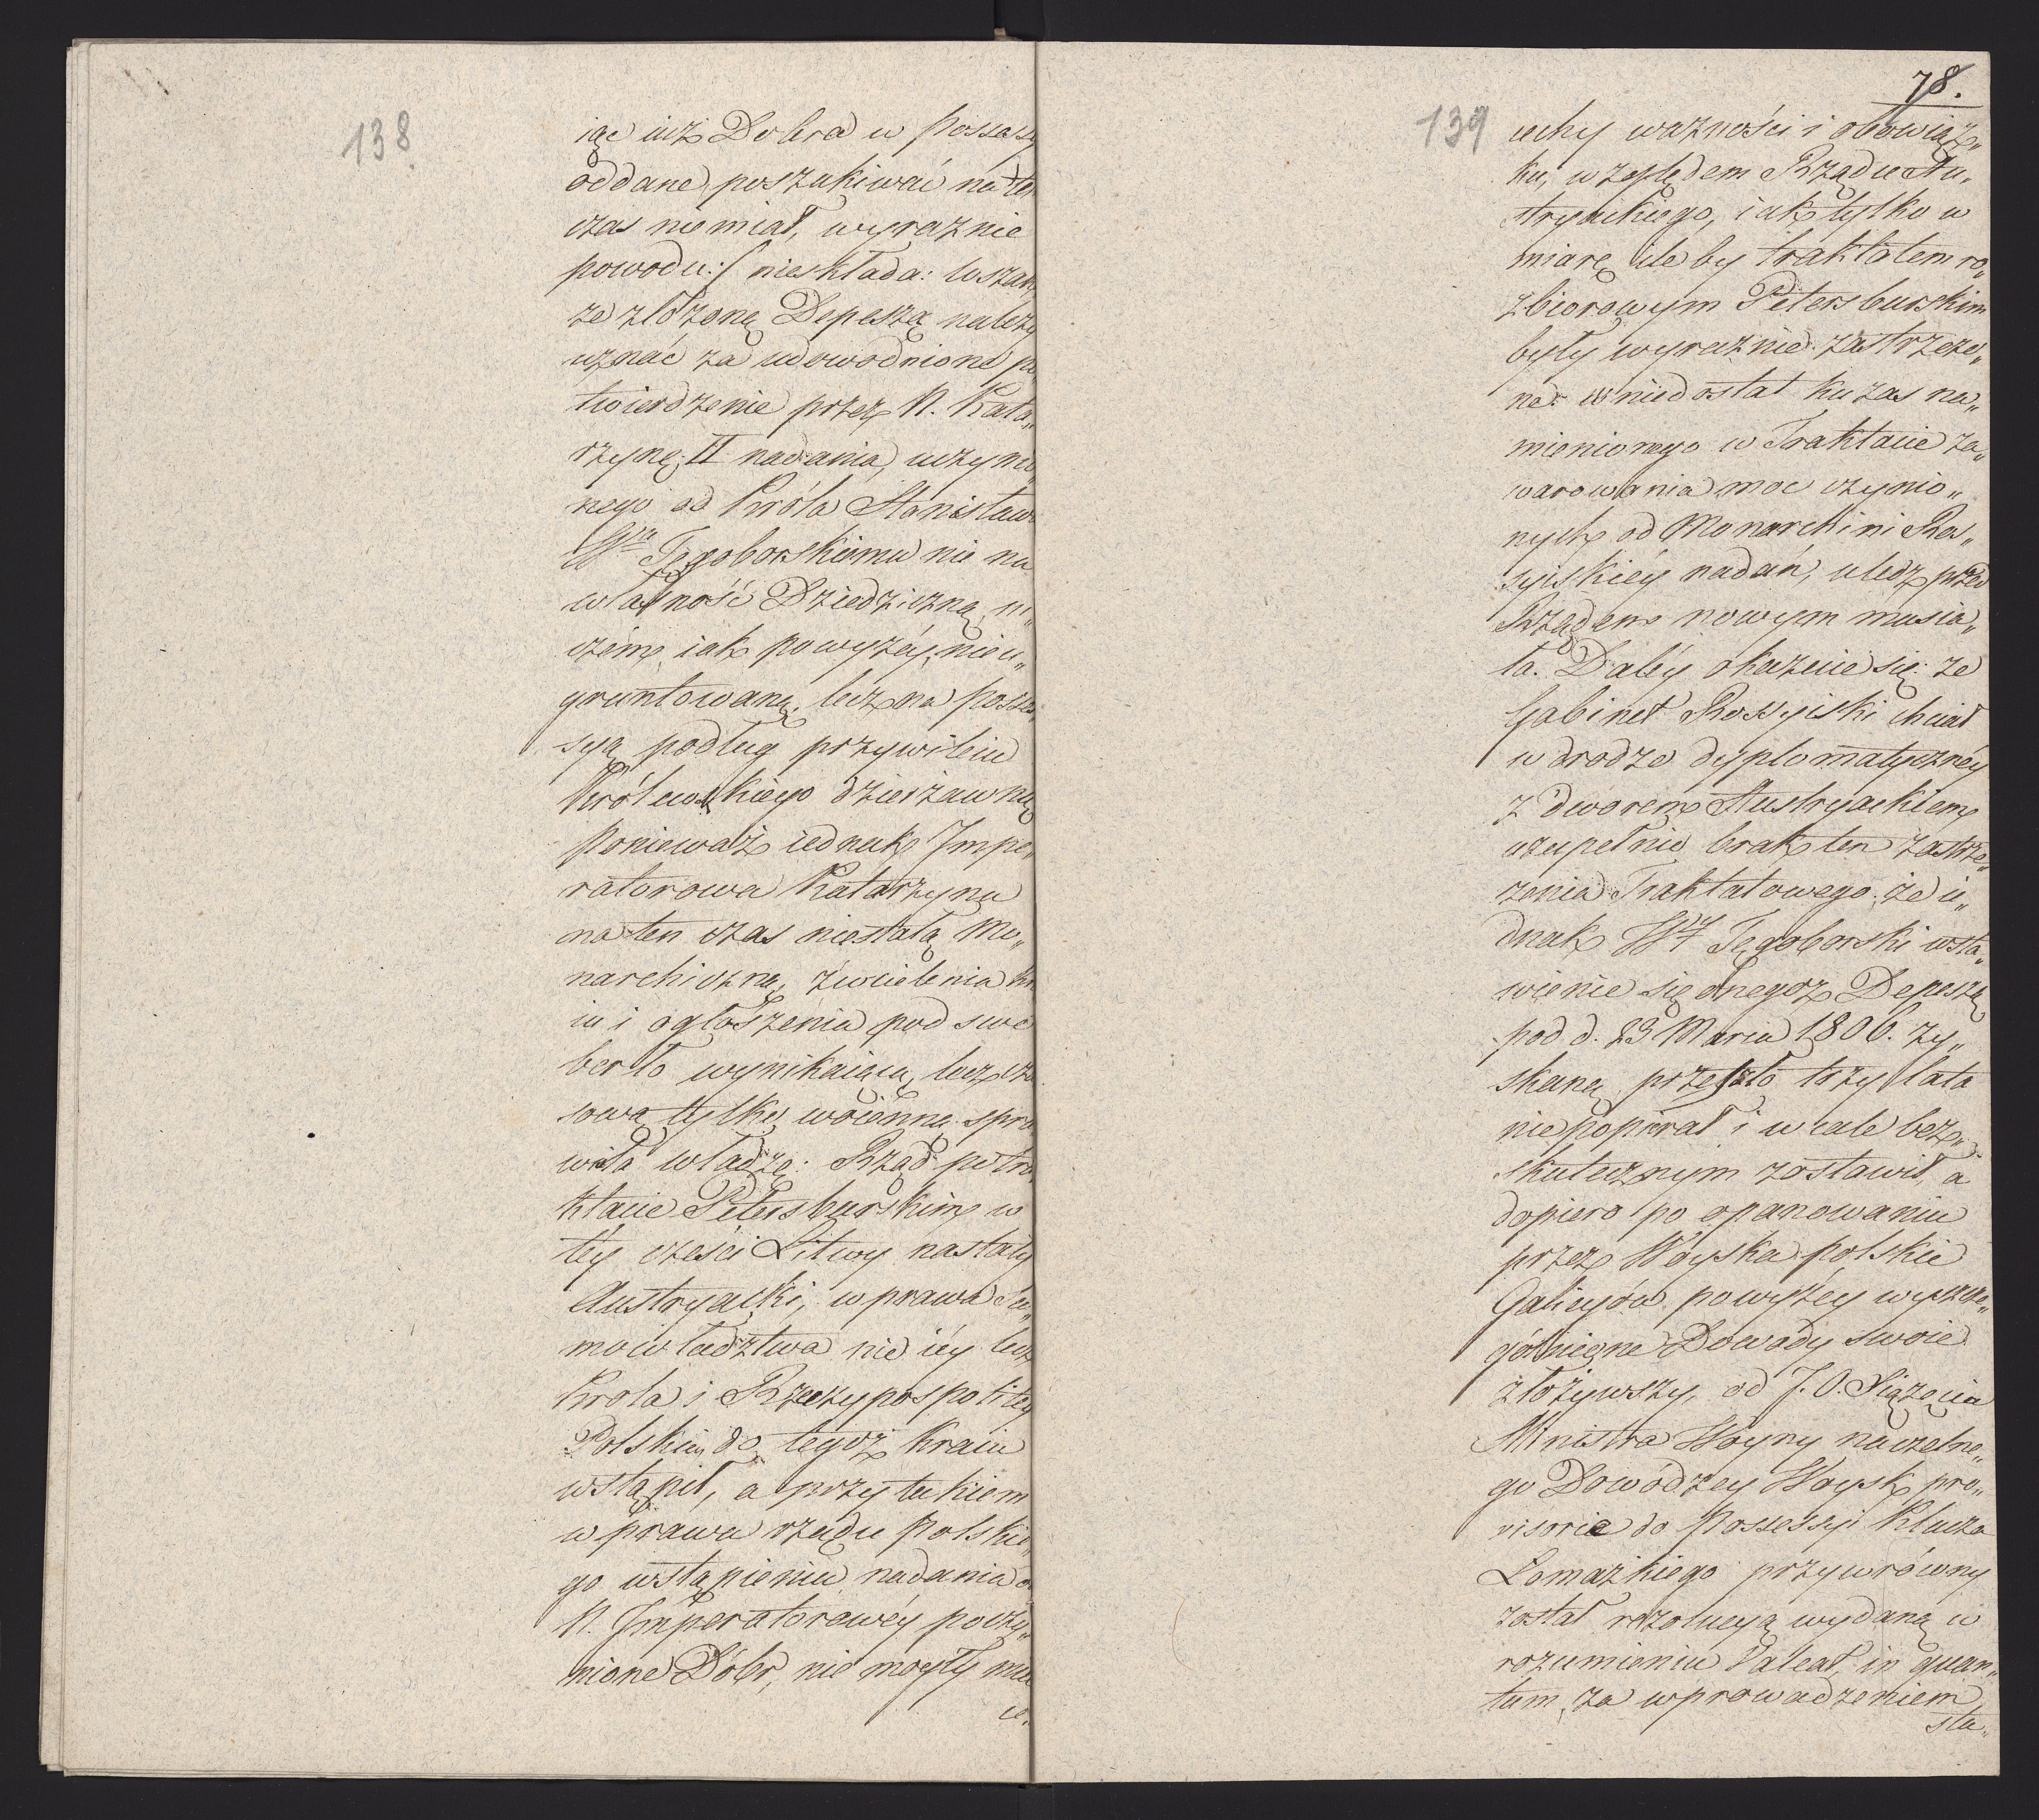 138
iąc iuż Dobra w Possessy
oddane, poszukiwać na ten
czas niemiał, wyraznie
powodu:/ nieskłada: wszak
ze złożoną Depeszą należy
uznać za udowodnione po
twierdzenie przez N. Kata„
rzynę II nadania, uczynio
nego od Króla Stanisława
Wmu Tęgoborskiemu nie na
własność Dziedziczną, ni„
czém, iak powyżéy, nieu„
gruntowaną, lecz na posse
syą podług przywileiu
Królewskiego dzierżawną
Ponieważ iednak Impe„
ratorowa Katarzyna
na ten czas niestałą Mo„
narchiczną, z wcielenia Kra
iu i ogłoszenia pod swe
berło wynikaiącą, lecz cza
sową tylko woienną spra
wiła władzę: Rząd po tra
ktacie Petersburskim w
téy cześci Litwy nastały
Austryacki, w prawa Sa„
mowładztwa nie iéy lecz
Krola i Rzeczypospolitey
Polskiey do tegoż Kraiu
wstąpił, a przy takiem
w prawa rządu Polskie„
go wstąpieniu nadania od
N. Imperatorowéy poczy„
nione Dóbr, nie mogły mie
ć.
78.
139
cechy ważności i obowiąz„
ku, względem Rządu Au„
stryackiego, iak tylko w
miarę ile by traktatem ro„
zbiorowym Petersburskim
były wyraznie zastrzeżo„
ne: w niedostatku zas na„
mienionego w Traktacie za„
warowania moc czynio„
nych od Monarchini Ros„
syiskiéy nadań, uledz przed
Rządem nowym musia„
ła. Daléy okazuie się: ze
Gabinet Rossyiski chciał
w drodze dyplomatycznéy
z dworem Austryackiem
uzupełnić brak ten zastrze„
żenia Traktatowego, że ie„
dnak W. Tęgoborski wsta„
wienie się onegoż Depeszą
pod d. 23 Marca 1806. zy„
skaną przeszło trzy lata
niepopierał i wcale bez„
skutecznym zostawił, a
dopiero po opanowaniu
przez Woyska polskie
Galicyów powyżéy wyszcze„
gólnione Dowody swoie
złożywszy, od J. O. Xiążęcia
Ministra Woyny naczelne„
go Dowódzcy Woysk pro„
visorie do Possessyi Klucza
Łomazkiego przywrócony
został rezolucyą wydaną w
rozumieniu Valeat, in quan„
tum, za wprowadzeniem
sta„